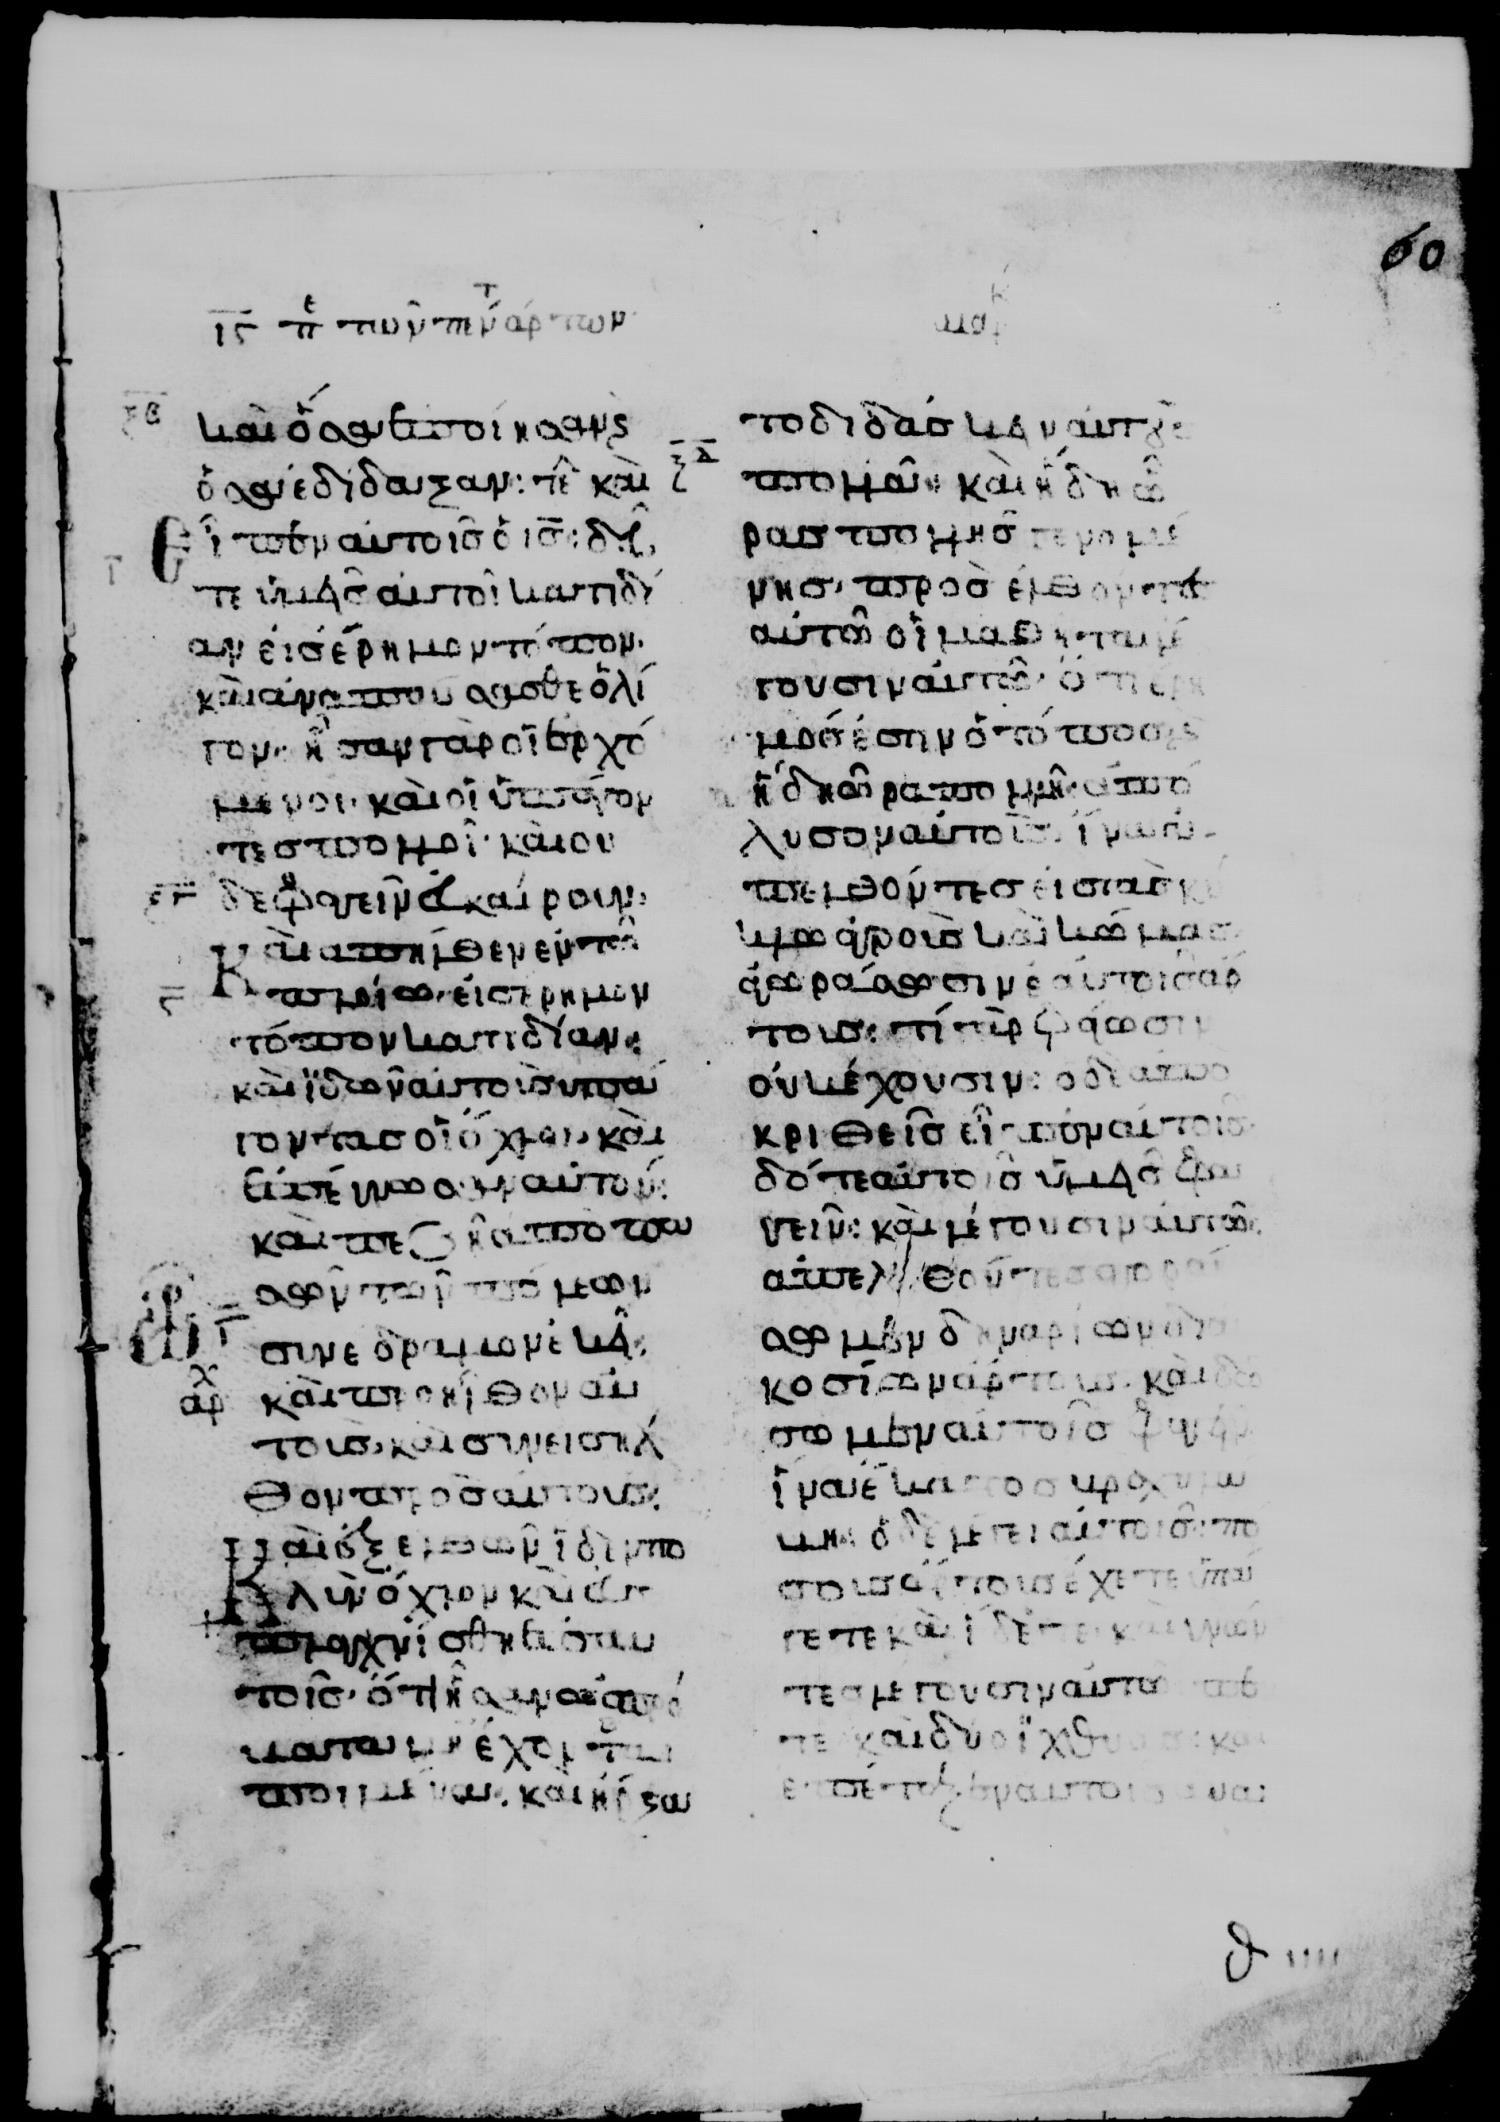 60
ις π̅ε̅ τῶν πέντ ἄρτων
μαρκ
ξβ
καὶ ὅσα ἐποίησαν καὶ
ὅσα ἐδίδαξαν: τε̅ καὶ
εἶπεν αὐτοῖς ὁ ις̅: δεῦ
τε ὑμεῖς αὐτοὶ κατιδί
αν εἰς ἔρημον τόπον.
καὶ ἀναπαύσασθε ὀλί
γον. ἦσαν γὰρ οἱ ἐρχό
μενοι. καὶ οἱ ὑπάγον
τες πολλοί. καὶ οὐ
δὲ φαγεῖν εὐκαίρουν:
Καὶ ἀπῆλθεν ἐν τῶ
πλοίω. εἰς ἔρημον
τόπον κατιδίαν:
καὶ ἴδων αὐτοὺς ὑπάγοντας οἱ ὄχλοι. καὶ
ἐπέγνωσαν αὐτόν:
καὶ πεζῆ ἀπὸ πα
σῶν τῶν πόλεων
συνέδραμον ἐκεῖ:
αρχ
καὶ προῆλθον αὐ
τούς. καὶ συνεισῆλ
θον πρὸς αὐτούς:
καὶ ἐξελθὼν ἴδεν πο
λὺν ὄχλον καὶ ἐ
σπλαγχνίσθη ἐπ αὐ
τοῖς. ὅτι ἦσαν ὡς πρό
βατα μὴ ἔχοντα
ποιμένα. καὶ ἤρξα
ξδ
το διδάσκειν αὐτοὺς
πολλά: καὶ ἤδη ὥ
ρας πολλῆς γενομέ
νης. προσελθόντες
αὐτῶ οἱ μαθηταὶ λέ
γουσιν αὐτῶ. ὅτι ἔρη
μός ἐστιν ὁ τόπος καὶ
ἤδη ὥρα πολλή. ἀπό
λυσον αὐτούς. ἵνα
ἀπελθόντες εἰς τοὺς κύ
κλω ἀγροὺς καὶ κώμας
ἀγοράσωσιν ἑαυτοῖς ἄρ
τους. τί γὰρ φάγωσιν
οὐκ ἔχουσιν: ὁ δὲ ἀπο
κριθεὶς εἶπεν αὐτοῖς
δότε αὐτοῖς ὑμεῖς φα
γεῖν: καὶ λέγουσιν αὐτῶ:
ἀπελθόντες ἀγορά
σωμεν δηναρίων δια
κοσίων ἄρτους. καὶ δώ
σωμεν αὐτοῖς φαγεῖν
ἵνα ἕκαστος βραχύ τι λά
βη. ὁ δὲ λέγει αὐτοῖς. πό
σους ἄρτους ἔχετε ὑπά
γετε καὶ ἴδετε. καὶ γνόν
τες λέγουσιν αὐτῶ πέν
τε καὶ δύο ἰχθύας: καὶ
ἐπέταξεν αὐτοῖς ἀνα